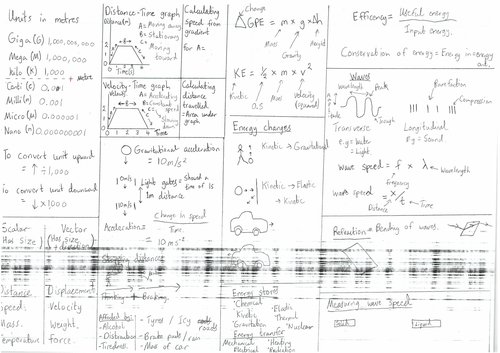 Units in metres
Giga (G) 1,000,000,000
Mega (M) 1,000,000
kilo (K) 1,000
metre
Centi (c) 0.01
Milli (m) 0.001
Micro (μ) 0.000001
Nano (n) 0.000000001
To convert unit upward
= ↑ ÷ 1,000
To convert unit downward
= ↓ x1000
Scalar
Has size
Vector
(Has size + direction)
Distance
Displacement
Speed
Velocity
Mass
Weight
Temperature
force
Distance-Time graph
A = Moving away
B = Stationary
C = Moving toward
Time(s)
Calculating speed from gradient
for A =
Velocity-Time graph
A = Accelerating
B = Constant speed
C = slowing down
Calculating distance travelled
= Area under graph
Gravitational acceleration
= 10m/s²
10m/s
Light gates = should a time of 1s
1m distance
Acceleration =
Change in speed
Time
= 10 ms⁻²
Stopping distance
Thinking + Braking
Affected by:
-Alcohol
-Distraction
-Tiredness
-Tyres / Icy roads
-Brake pads / rain
-Mass of car
Change
ΔGPE = m x g x Δh
Mass
Gravity
Height
KE = ½ x m x v²
Kinetic
0.5
Mass
Velocity (squared)
Energy changes
Kinetic → Gravitational
Kinetic → Elastic
→ Kinetic
Energy stores
-Chemical
-Kinetic
-Gravitation
-Elastic
-Thermal
-Nuclear
Energy transfer
Mechanical
Electrical
-Heating
-Radiation
Efficiency = Useful energy
Input energy
Conservation of energy = Energy in = energy out
Waves
Wavelength
Peak
Trough
Transverse
E.g = Water
= Light
Rarefaction
Compression
Longitudinal
E.g = Sound
Wave speed = f x λ
Wavelength
Frequency
Wave speed = x/t
Distance
Time
Refraction = Bending of waves.
Measuring wave speed